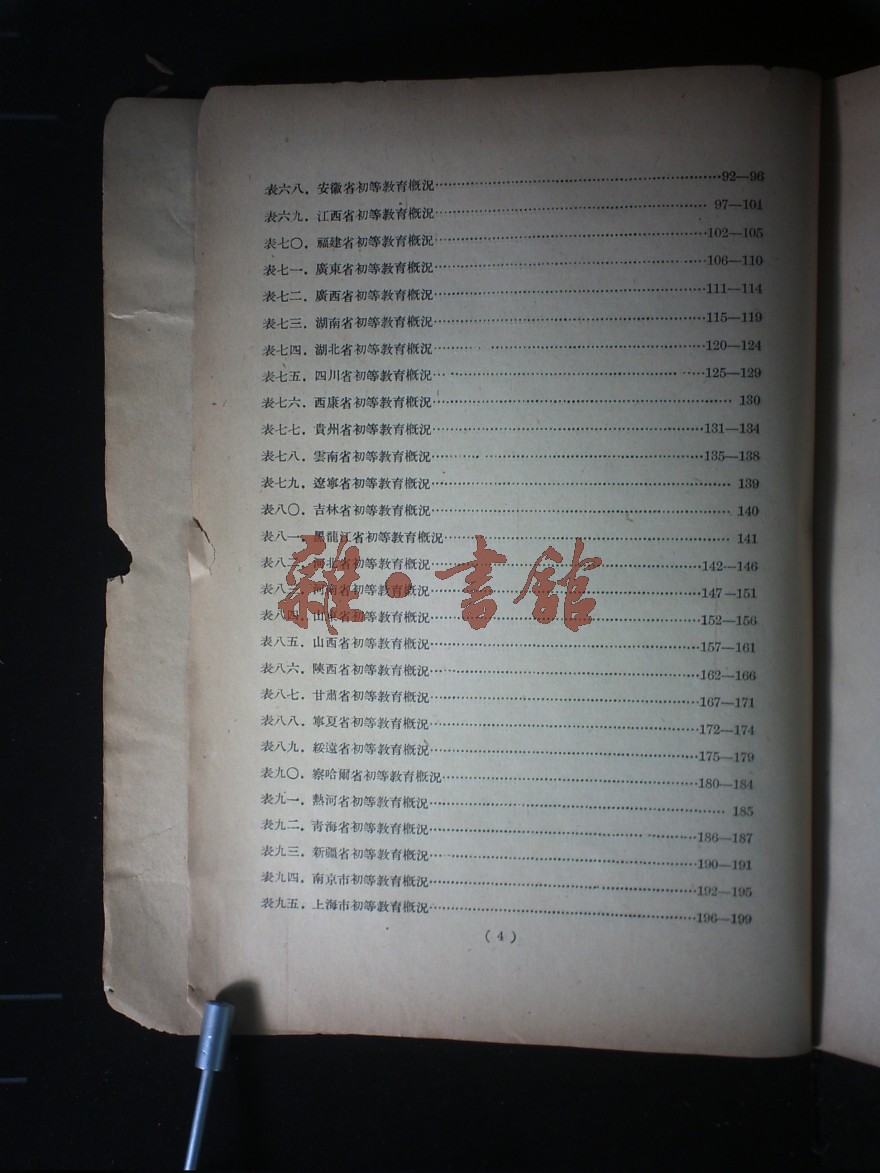 表六八．安徽省初等教育概況……92—96
表六九．江西省初等教育概況……97—101
表七〇．福建省初等教育概況……102—105
表七一．廣東省初等教育概況……106—110
表七二．廣西省初等教育概況……111—114
表七三．湖南省初等教育概況……115—119
表七四．湖北省初等教育概況……120—124
表七五．四川省初等教育概況……125—129
表七六．西康省初等教育概況……130
表七七．貴州省初等教育概況……131—134
表七八．雲南省初等教育概況……135—138
表七九．遼寧省初等教育概況……139
表八〇．吉林省初等教育概況……140
表八一．黑龍江省初等教育概況……141
表八二．河北省初等教育概況……142—146
表八三．河南省初等教育概況……147—151
表八四．山東省初等教育概況……152—156
表八五．山西省初等教育概況……157—161
表八六．陝西省初等教育概況……162—166
表八七．甘肅省初等教育概況……167—171
表八八．寧夏省初等教育概況……172—174
表八九．綏遠省初等教育概況……175—179
表九〇．察哈爾省初等教育概況……180—184
表九一．熱河省初等教育概況……185
表九二．青海省初等教育概況……186—187
表九三．新疆省初等教育概況……190—191
表九四．南京市初等教育概況……192—195
表九五．上海市初等教育概況……196—199
(4)
雜·書館